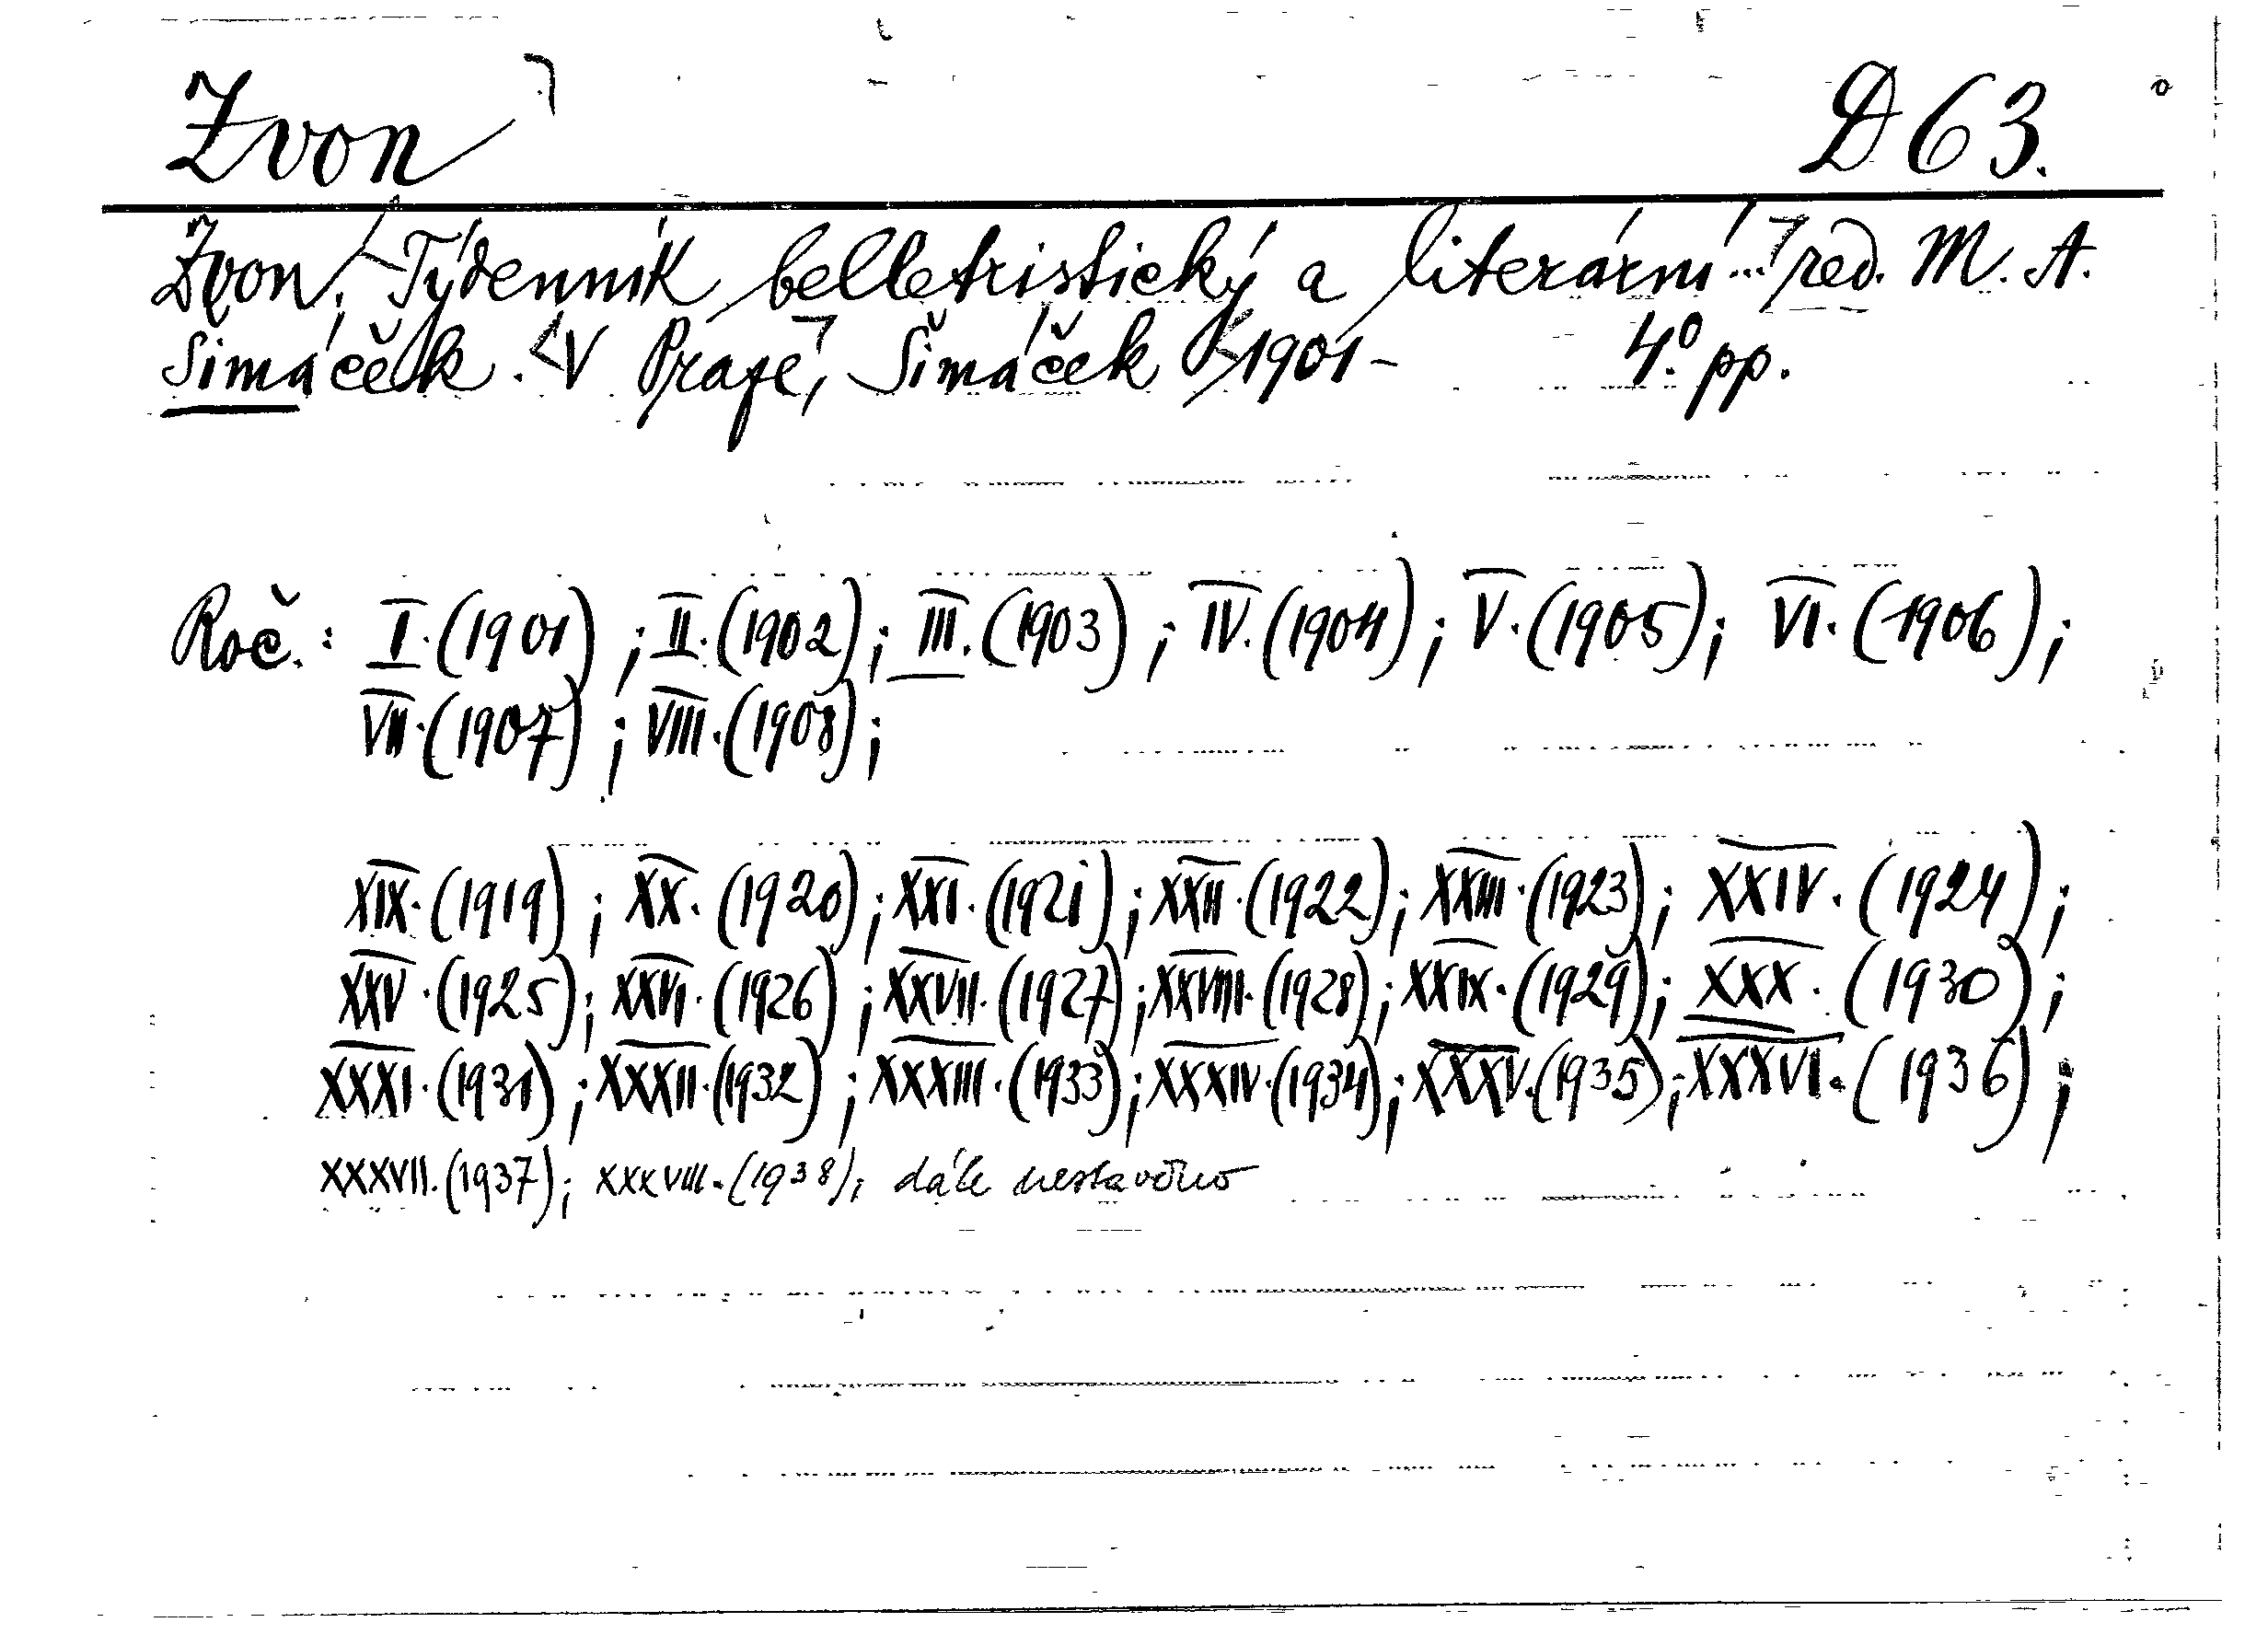 Zvon D 63.
Zvon. Týdenník belletristický a literární... red. M. A.
Šimáček. V Praze, Šimáček 1901- 4.° pp.
Roč.: I. (1901); II. (1902); III. (1903); IV. (1904); V. (1905); VI. (1906);
VII. (1907); VIII. (1908);
XIX. (1919); XX. (1920); XXI. (1921); XXII. (1922); XXIII. (1923); XXIV. (1924);
XXV. (1925); XXVI. (1926); XXVII. (1927); XXVIII. (1928); XXIX. (1929); XXX. (1930);
XXXI. (1931); XXXII. (1932); XXXIII. (1933); XXXIV. (1934); XXXV. (1935); XXXVI. (1936);
XXXVII. (1937); XXXVIII. (1938); dále